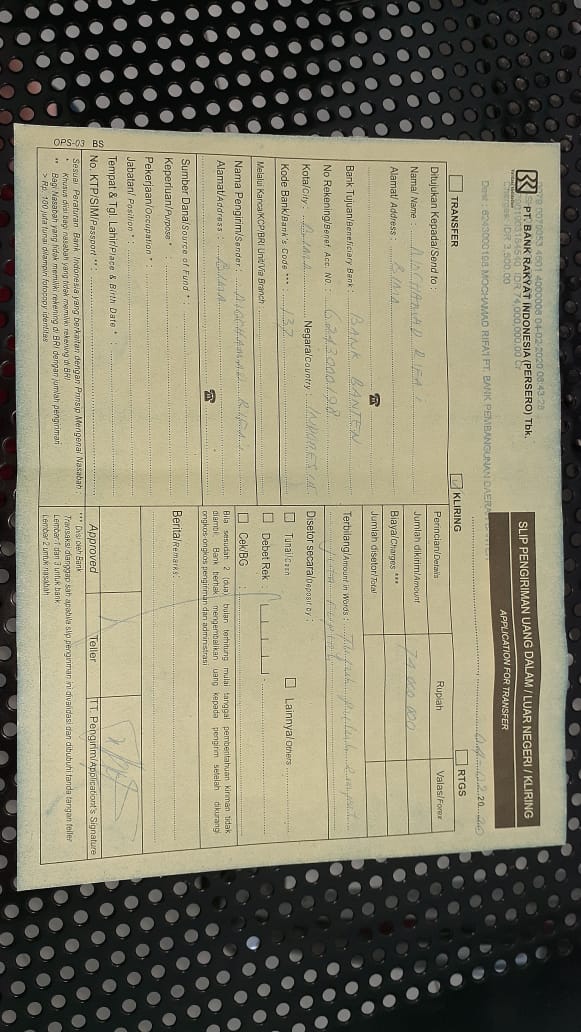 PT. BANK RAKYAT INDONESIA (PERSERO) Tbk.
SLIP PENGIRIMAN UANG DALAM / LUAR NEGERI / KLIRING
APPLICATION FOR TRANSFER
04-02-2020 08:43:28
MOCHAMAD RIFAI PT. BANK PEMBANGUNAN DAERAH
TRANSFER
KLIRING
RTGS
Ditujukan Kepada/Send to :
Nama/ Name : MOCHAMAD RIFAI
Alamat/ Address : BIMA
Bank Tujuan/Beneficiary Bank : BANK BANTEN
No Rekening/Benef. Acc. No. :
Kota/City : BIMA Negara/Country : INDONESIA
Kode Bank/Bank's Code *** : 137
Melalui Kanca/KCP/BRI Unit/Via Branch
Nama Pengirim/Sender : MOCHAMAD RIFAI
Alamat/Address : BIMA
Sumber Dana/Source of Fund * :
Keperluan/Purpose *
Pekerjaan/Occupation * :
Jabatan/ Position * :
Tempat & Tgl. Lahir/Place & Birth Date *
No. KTP/SIM/Passport ** :
Sesuai Peraturan Bank Indonesia yang berkaitan dengan Prinsip Mengenal Nasabah :
* Khusus diisi bagi nasabah yang tidak memiliki rekening di BRI
** Bagi Nasabah yang tidak memiliki rekening di BRI dengan jumlah pengiriman
> Rp. 100 juta tunai dilampiri fotocopy identitas
OPS-03 BS
Perincian/Details
Rupiah
Valas/Forex
Jumlah dikirim/Amount 74.000.000
Biaya/Charges ***
Jumlah disetor/Total
Terbilang/Amount in Words : Tujuh puluh empat
juta rupiah
Disetor secara/Deposit by :
Tunai/Cash
Lainnya/Others
Debet Rek :
Cek/BG :
Bila sesudah 2 (dua) bulan terhitung mulai tanggal pemberitahuan kiriman tidak
diambil, Bank berhak mengembalikan uang kepada pengirim setelah dikurangi
ongkos-ongkos pengiriman dan administrasi
Berita/Remarks :
Approved
Teller
TT. Pengirim/Application's Signature
*** Diisi oleh Bank
Transaksi dianggap sah apabila slip pengiriman ini divalidasi dan dibubuhi tanda tangan teller
Lembar 1 dan 3 untuk bank
Lembar 2 untuk nasabah